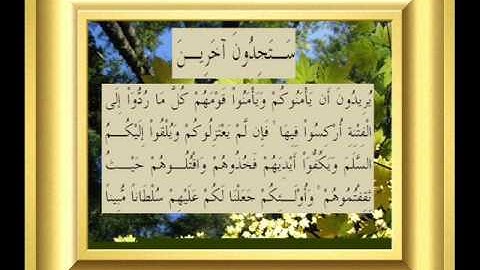 سَتَجِدُونَ آخَرِينَ
يُرِيدُونَ أَن يَأْمَنُوكُمْ وَيَأْمَنُواْ قَوْمَهُمْ كُلَّ مَا رُدُّوَاْ إِلَى
الْفِتْنِةِ أُرْكِسُواْ فِيِهَا فَإِن لَّمْ يَعْتَزِلُوكُمْ وَيُلْقُواْ إِلَيْكُمُ
السَّلَمَ وَيَكُفُّوَاْ أَيْدِيَهُمْ فَخُذُوهُمْ وَاقْتُلُوهُمْ حَيْثُ
ثِقِفْتُمُوهُمْ وَأُوْلَئِكُمْ جَعَلْنَا لَكُمْ عَلَيْهِمْ سُلْطَاناً مُّبِيناً